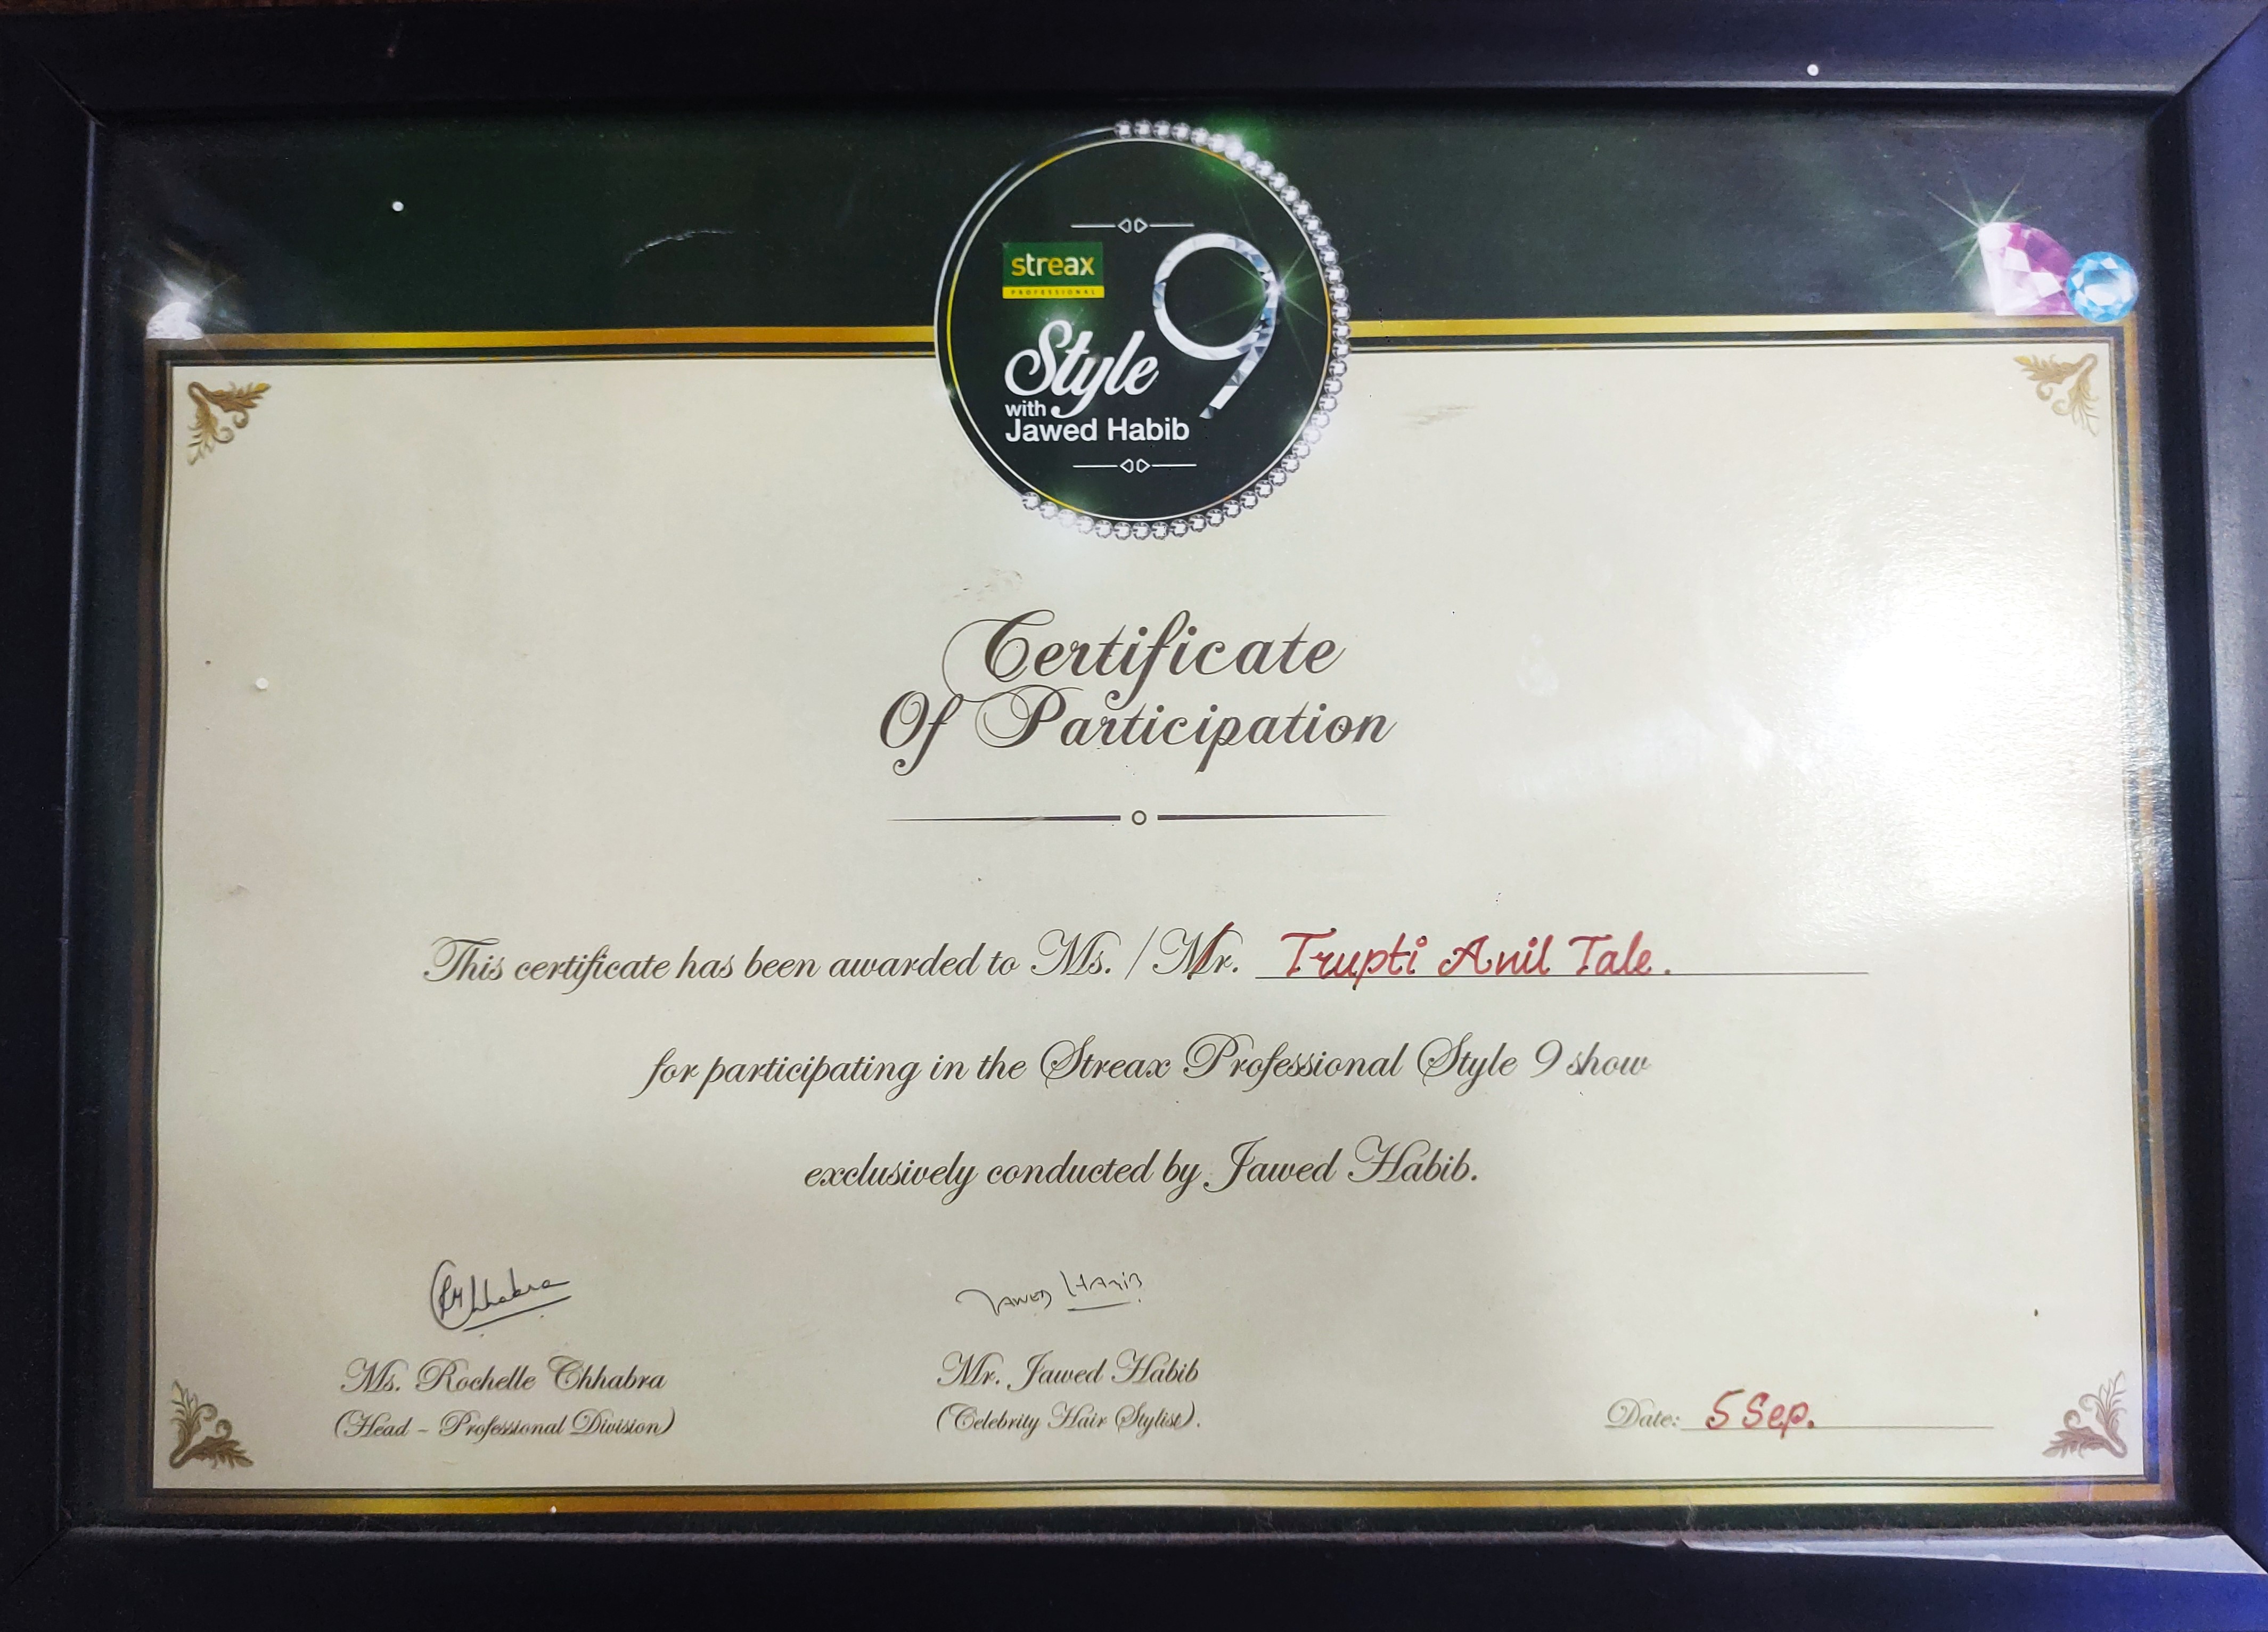 streax
PROFESSIONAL
Style 9
with
Jawed Habib
Certificate
Of Participation
This certificate has been awarded to Ms. / Mr. Trupti Anil Tale.
for participating in the Streax Professional Style 9 show
exclusively conducted by Jawed Habib.
RChhabra JAWED HABIB
Ms. Rochelle Chhabra Mr. Jawed Habib
(Head - Professional Division) (Celebrity Hair Stylist). Date: 5 Sep.